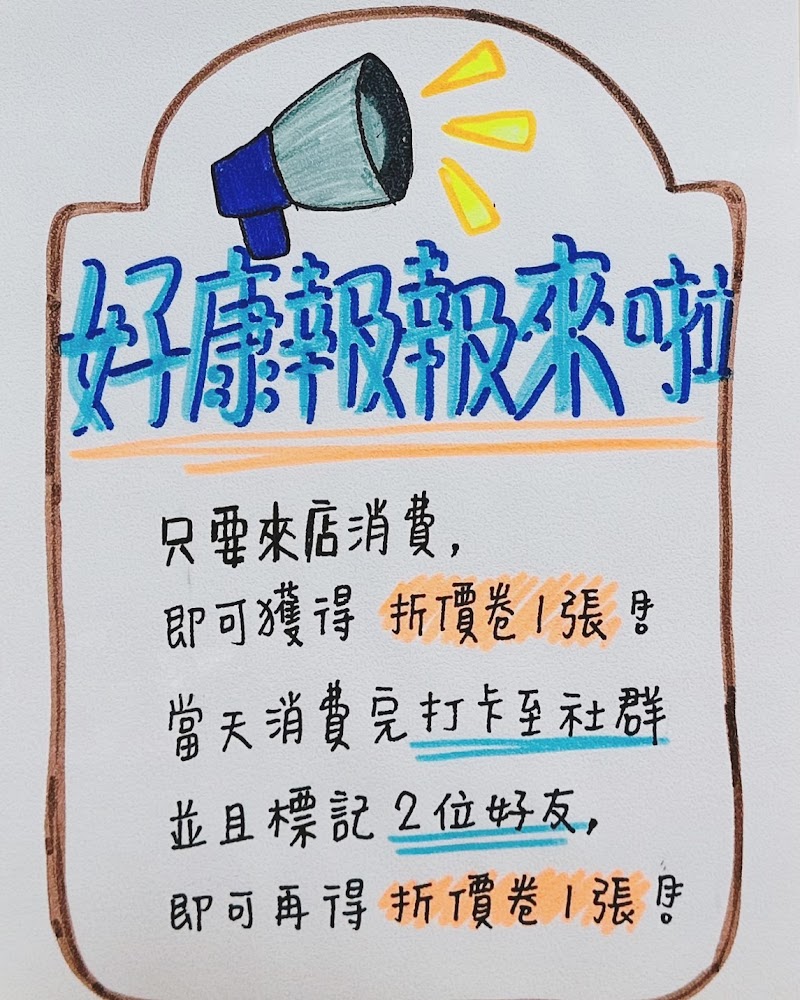 好康報報來啦
只要來店消費,
即可獲得 折價卷1張!
當天消費完打卡至社群
並且標記2位好友,
即可再得折價卷1張!